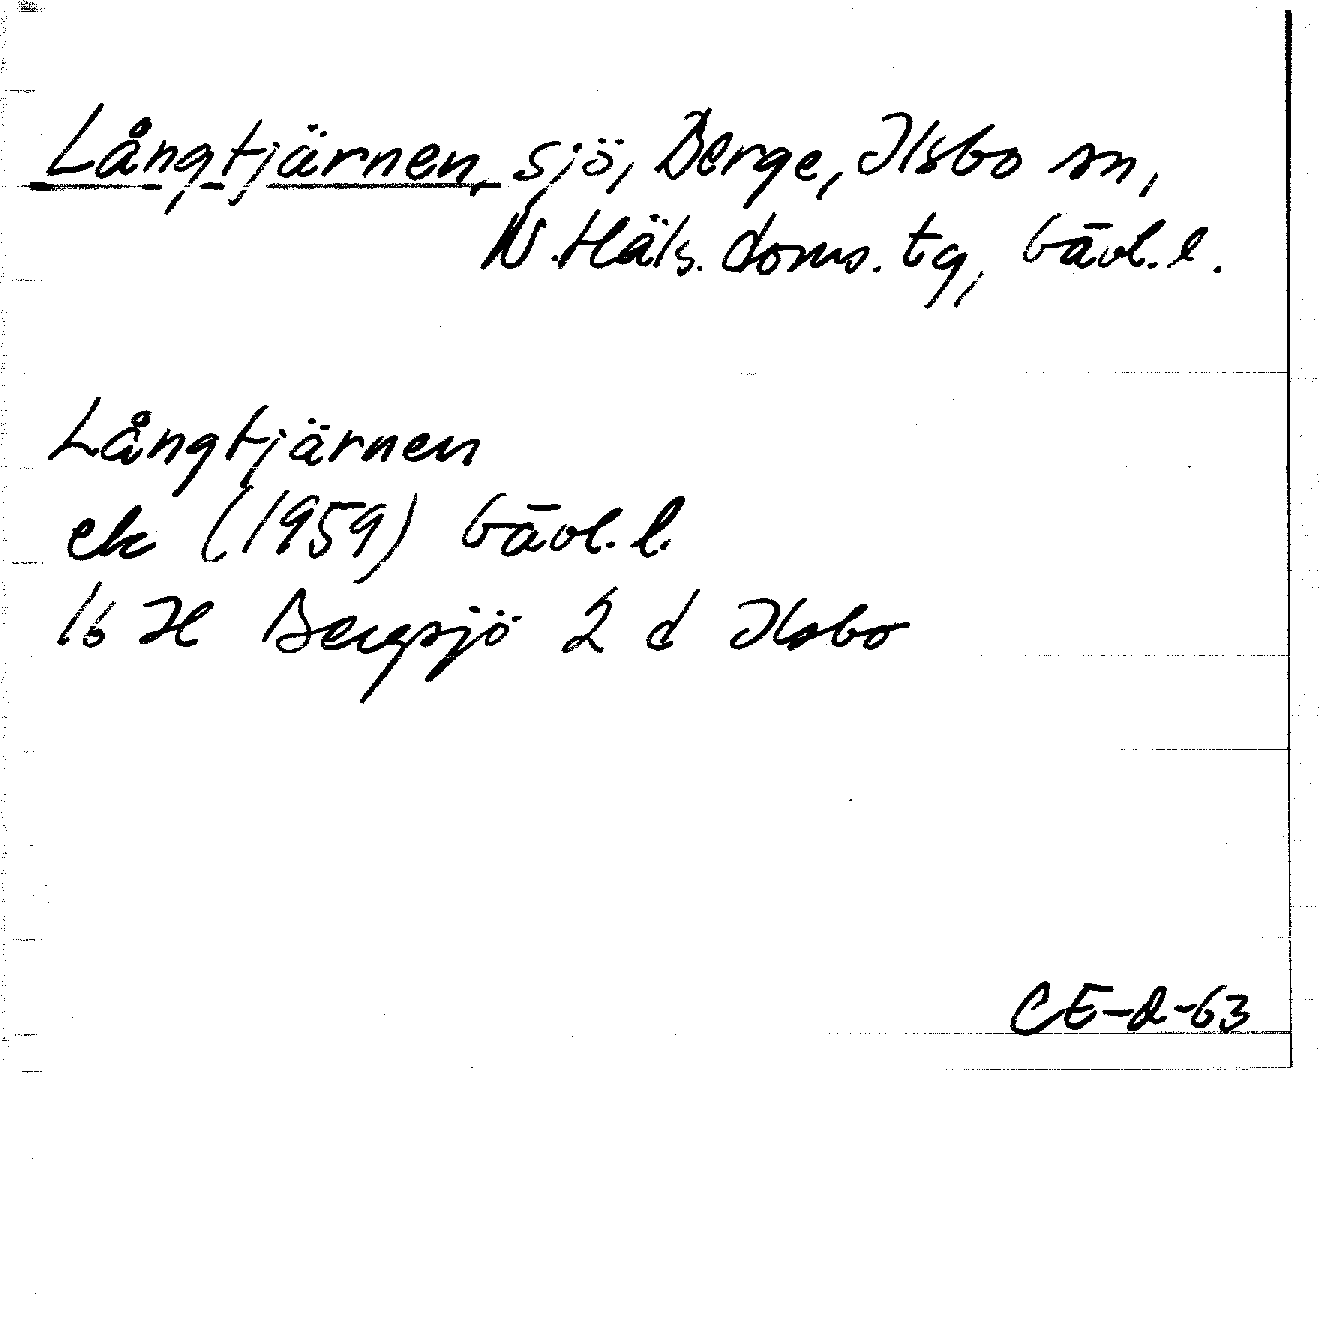 Långtjärnen, sjö, Berge, Ilsbo sn,
N. Häls. doms. tg, Gävl. l.
Långtjärnen
ek (1959) Gävl. l.
16 H Bergsjö 2 d Ilsbo
CE-2-63